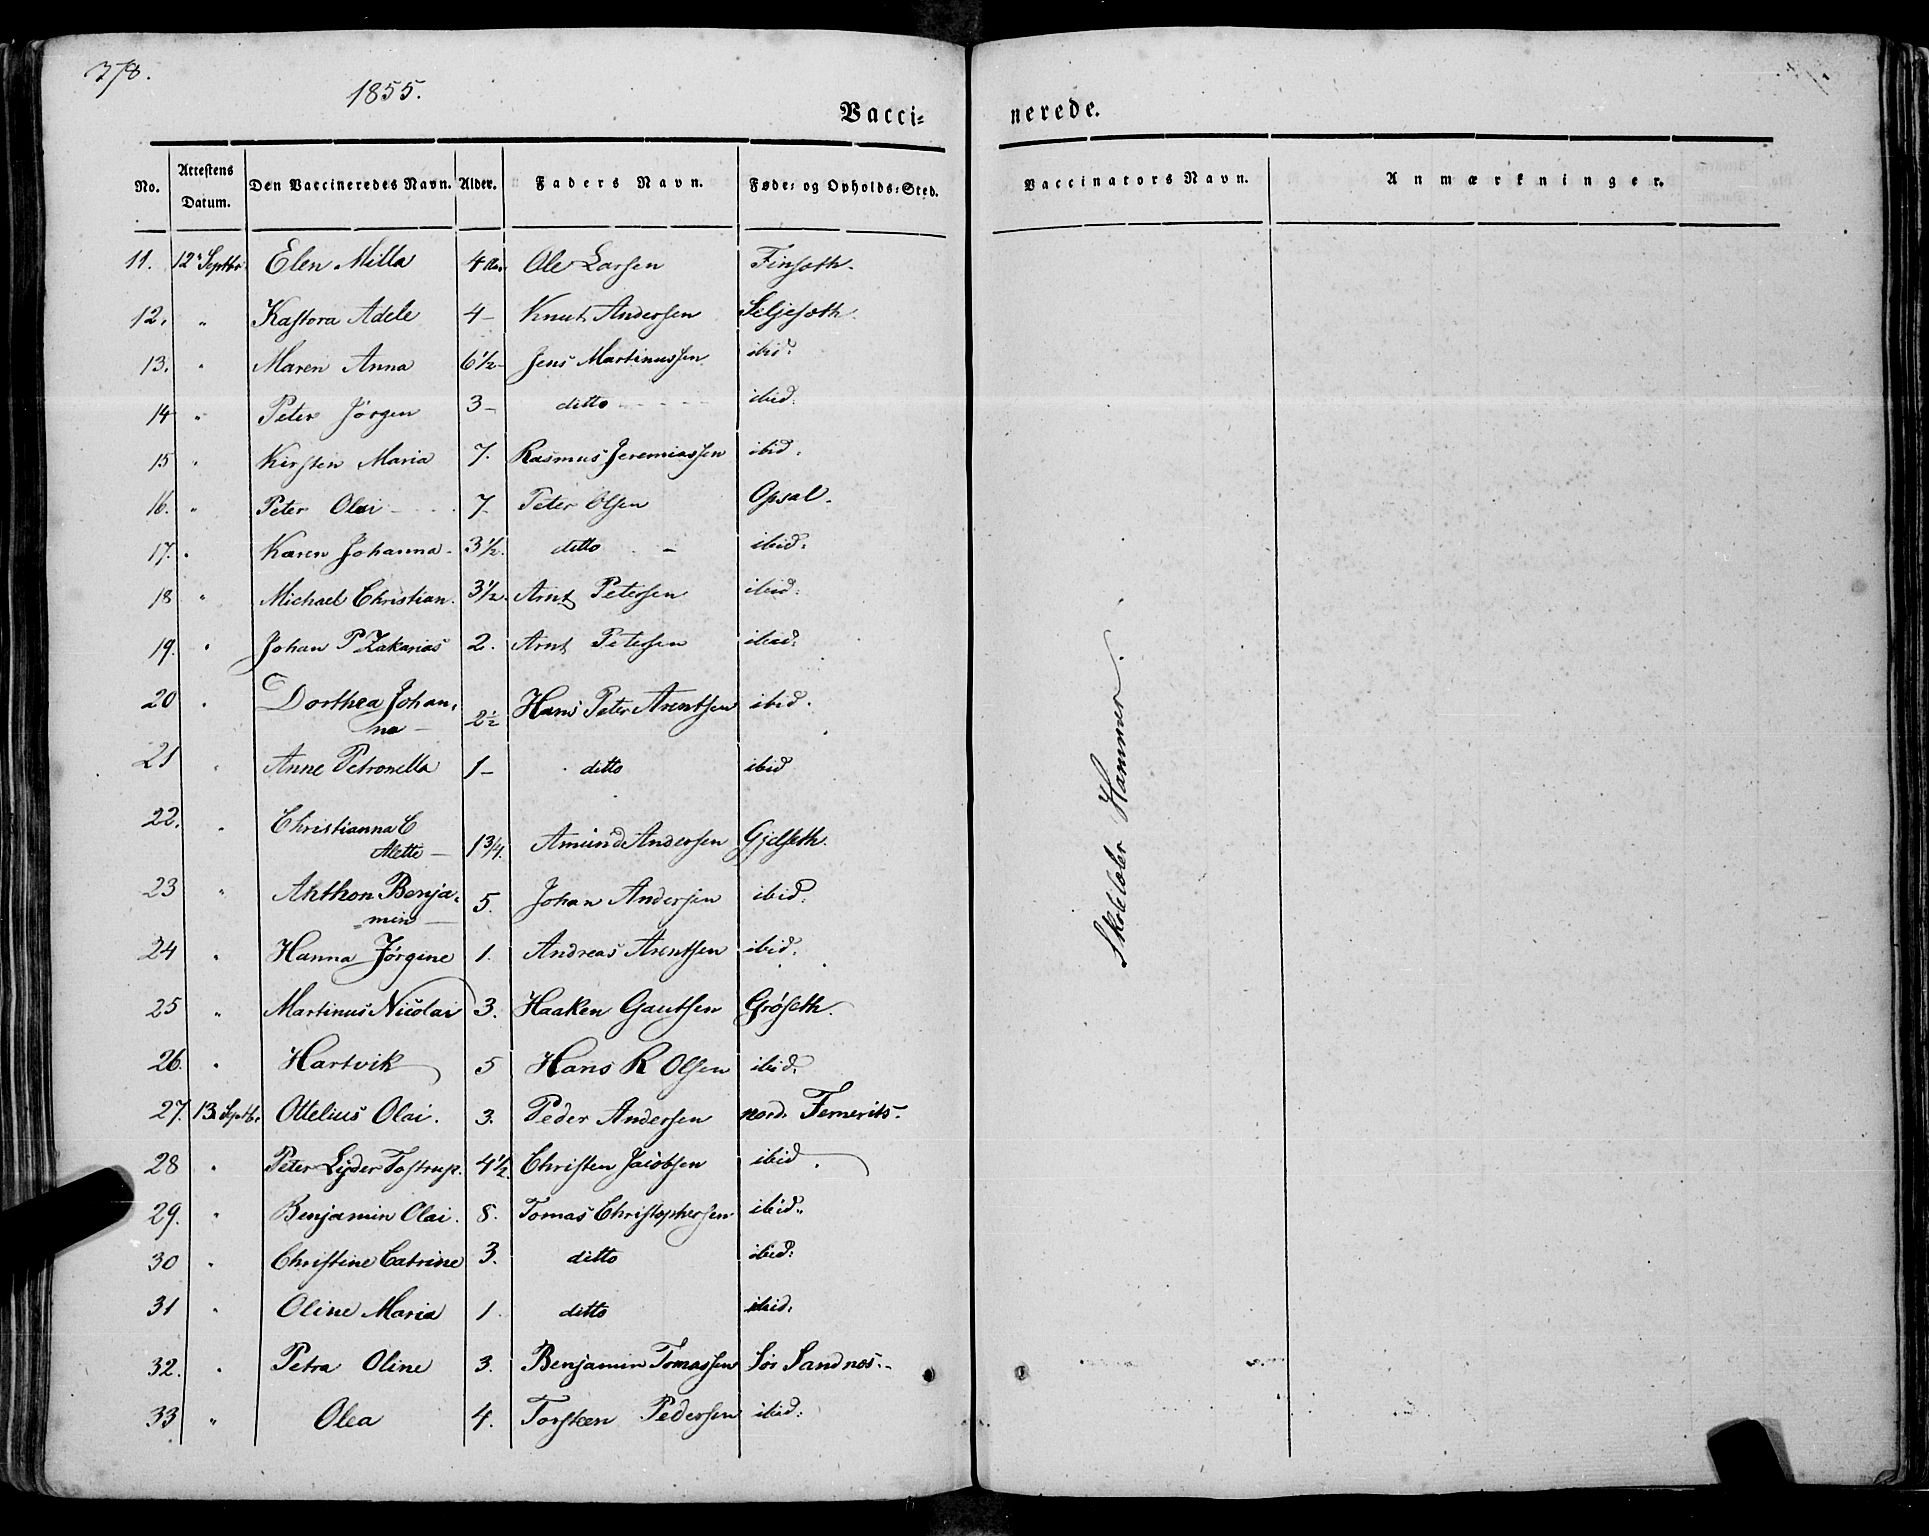 378.
1855.
Vacci- nerede.
No. Attestens Datum. Den Vaccineredes Navn. Alder. Faders Navn. Føde- og Opholds-Sted. Vaccinators Navn. Anmærkninger.
11. 12 Septbr Elen Milla 4 Ole Larsen Finsæth.
12. " Kastora Adele 4- Knut Andersen Seljesæth.
13. " Maren Anna 6½- Jens Martinussen ibid:
14 " Peter Jørgen 3- ditto ibid:
15 " Kirsten Maria 7. Rasmus Jeremiassen ibid:
16. " Peter Olai 7 Peter Olsen Opsal.
17. " Karen Johanna- 3½. ditto - ibid:
18 " Michael Christian. 3½. Arnt Petersen ibid:
19. " Johan P Zakarias 2. Arnt Petersen ibid:
20 " Dorthea Johan-
na- 2½ Hans Peter Arentsen ibid.
21 " Anne Petronella 1- ditto ibid
22. " Christianna C
Alette- 1¾. Amund Andersen Gjelseth.
23 " Anthon Benja-
min 5. Johan Andersen ibid:
24 " Hanna Jørgine 1. Andreas Arentsen ibid:
25 " Martinus Nicolai 3. Haaken Gautsen Grøseth.
26. " Hartvik 5 Hans R Olsen ibid.
27. 13 Septbr Ottelius Olai. 3. Peder Andersen nord. Femerits.
28 " Peter Lyder Tostrup. 4½. Christen Jacobsen ibid.
29. " Benjamin Olai. 8. Tomas Christophersen ibid:
30 " Christine Catrine 3. ditto ibid:
31 " Oline Maria 1. ditto ibid:
32. " Petra Oline 3. Benjamin Tomassen Sør Sandnes.-
33 " Olea 4. Torsten Pedersen ibid:
Skolelærer Hammer.